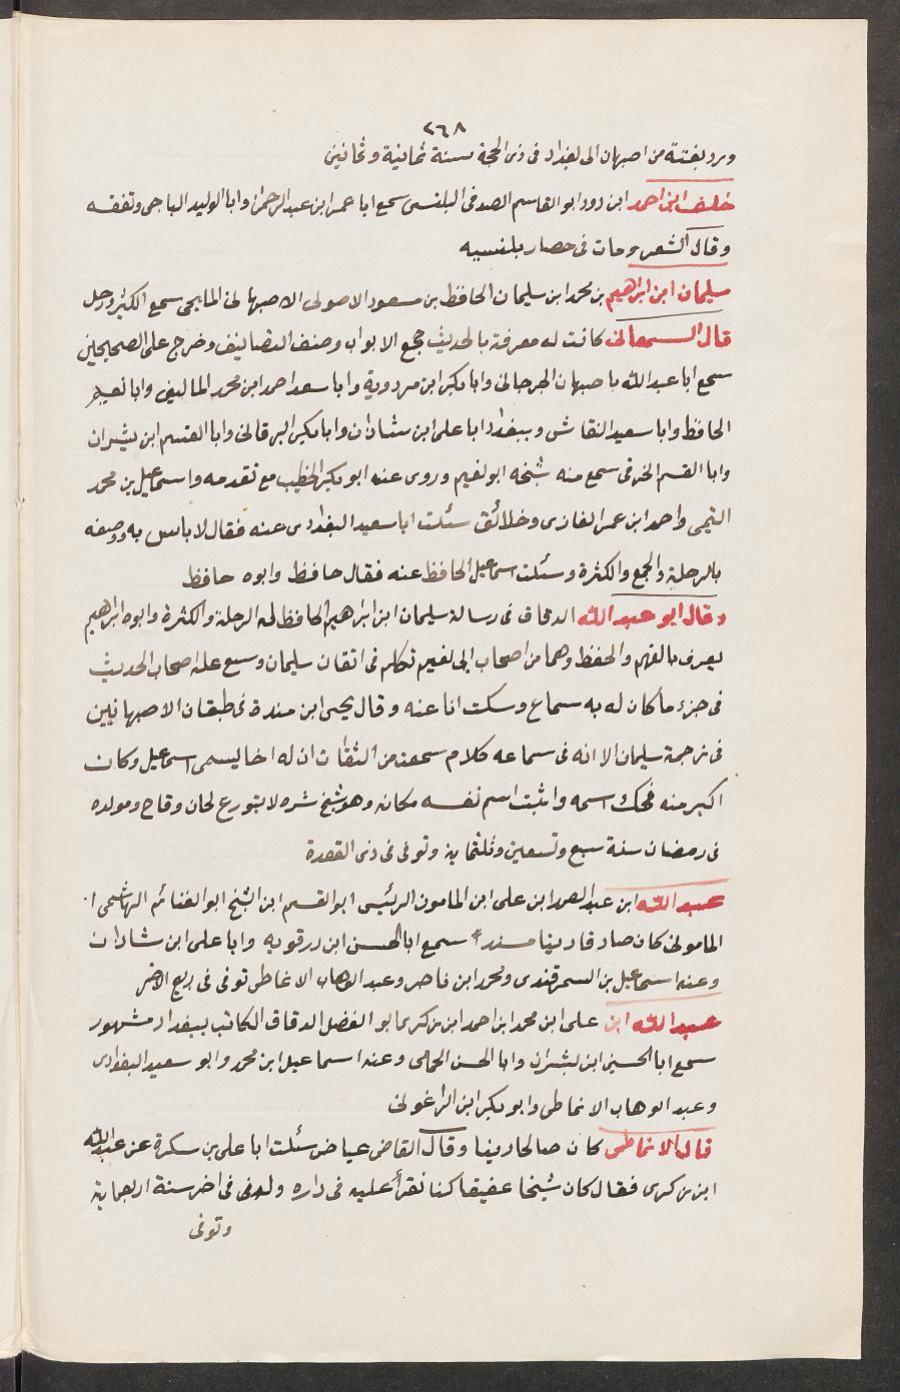 ٢٦٨
ورد بغتة من اصبهان الى بغداد فى ذى الحجة سنة ثمانية وثمانين
خلف ابن احمد ابن دود ابو القاسم الصدفى البلنسى سمع ابا عمر ابن عبد الرحمن وابا الوليد الباجى وتفقه
وقال الشعر ومات فى حصار بلنسيه
سليمان ابن ابراهيم بن محمد ابن سليمان الحافظ بن مسعود الاصولى الاصبهانى المايجى سمع الكثير ورحل
قال السمعانى كانت له معرفة بالحديث جمع الابواب وصنف التصانيف وخرج على الصحيحين
سمع ابا عبد الله باصبهان الجرجانى وابا بكر ابن مردوية وابا سعد احمد ابن محمد المالينى وابا نعيم
الحافظ وابا سعيد النقاش وببغداد ابا على ابن شاذان وابا بكر البرقانى وابا القسم ابن بشران
وابا القسم الخرفى سمع منه شيخه ابو نعيم وروى عنه ابو بكر الخطيب مع تقدمه واسماعيل بن محمد
التيمى واحمد ابن عمر الغازى وخلائق سئلت ابا سعيد البغدادى عنه فقال لا باس به ووصفه
بالرحلة والجمع والكثرة وسئلت اسماعيل الحافظ عنه فقال حافظ وابوه حافظ
وقال ابو عبد الله الدقاق فى رسالة سليمان ابن ابراهيم الحافظ له الرحلة والكثرة وابوه ابراهيم
يعرف بالفهم والحفظ وهما من اصحاب ابى نعيم تكلم فى اتقان سليمان وسمع عليه اصحاب الحديث
فى جزء ما كان له به سماع وسكت انا عنه وقال يحيى ابن مندة فى طبقات الاصبهانيين
فى ترجمة سليمان الا انه فى سماعه كلام سمعت من الثقات ان له اخا يسمى اسماعيل وكان
اكبر منه فحك اسمه واثبت اسم نفسه مكانه وهو شيخ شره لا يتورع لحان وقاح ومولده
فى رمضان سنة سبع وتسعين وثلثماية وتوفى فى ذى القعدة
عبد الله ابن عبد الصمد ابن على ابن المامون الرئيس ابو القسم ابن الشيخ ابو الغنائم الهاشمى
المامونى كان صادقا دينا مسندا سمع ابا الحسن ابن رزقويه وابا على ابن شاذان
وعنه اسماعيل بن السمرقندى ومحمد ابن ناصر وعبد الوهاب الانماطى توفى فى ربيع الاخر
عبد الله ابن على ابن محمد ابن احمد ابن زكرى ابو الفضل الدقاق الكاتب ببغداد مشهور
سمع ابا الحسين ابن بشران وابا الحسن الحمامى وعنه اسماعيل ابن محمد وابو سعيد البغدادى
وعبد الوهاب الانماطى وابو بكر ابن الزاغونى
قال الانماطى كان صالحا دينا وقال القاضى عياض سئلت ابا على بن سكرة عن عبد الله
ابن زكرى فقال كان شيخا عفيفا كنا نقرأ عليه فى داره ولد فى اخر سنة اربعماية
وتوفى